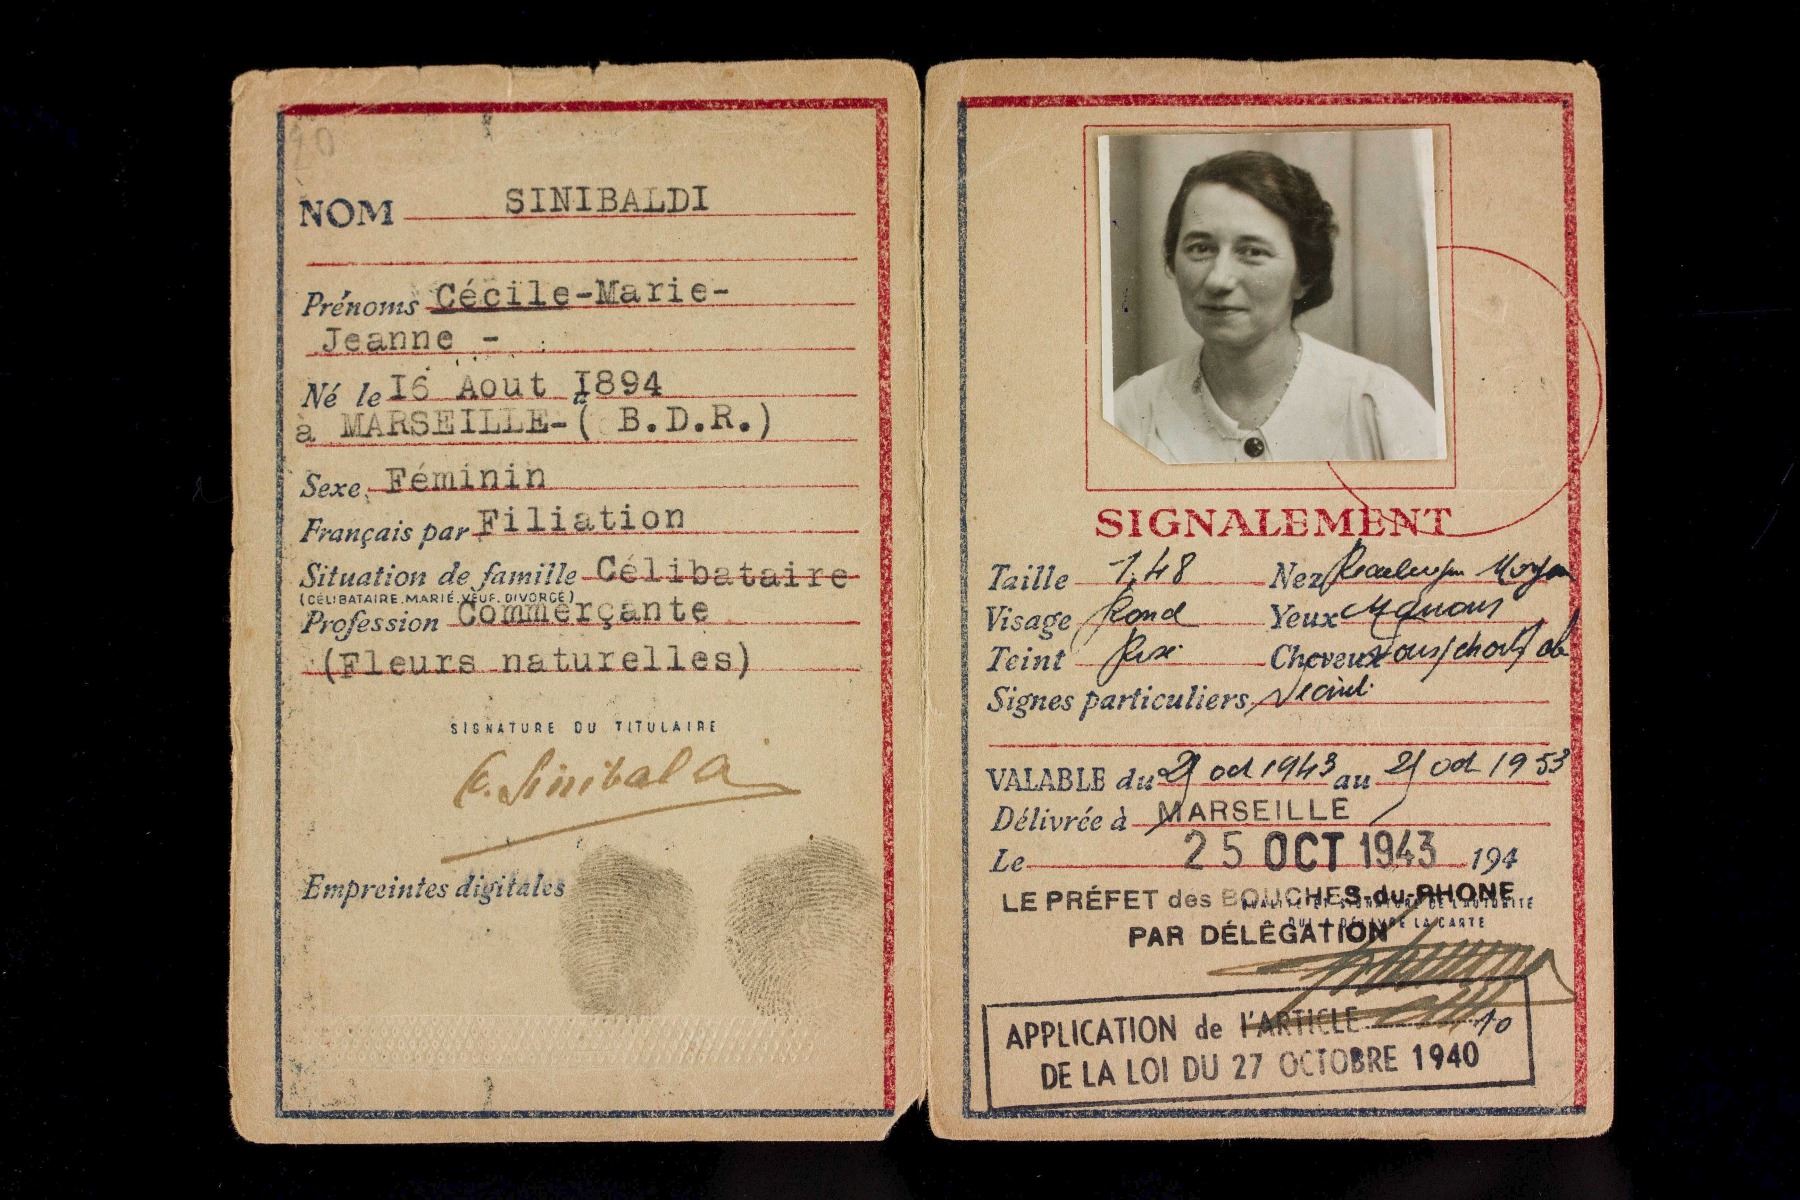 NOM SINIBALDI
Prénoms Cécile-Marie-
Jeanne -
Né le 16 Aout 1894
à MARSEILLE-( B.D.R.)
Sexe Féminin
Français par Filiation
Situation de famille Célibataire
(CÉLIBATAIRE.MARIÉ.VEUF.DIVORCÉ)
Profession Commerçante
(Fleurs naturelles)
SIGNATURE DU TITULAIRE
C. Sinibaldi
Empreintes digitales
SIGNALEMENT
Taille 1,48 Nez Rectiligne Moyen
Visage Rond Yeux Marrons
Teint Rosé Cheveux
Signes particuliers Néant
VALABLE du 21 oct 1943 au 21 oct 1953
Délivrée à MARSEILLE
Le 25 OCT 1943 194
LE PRÉFET des BOUCHES-du-RHONE
SIGNATURE DE L'AUTORITÉ
QUI A DÉLIVRÉ LA CARTE
PAR DÉLÉGATION
APPLICATION de l'ARTICLE 10
DE LA LOI DU 27 OCTOBRE 1940